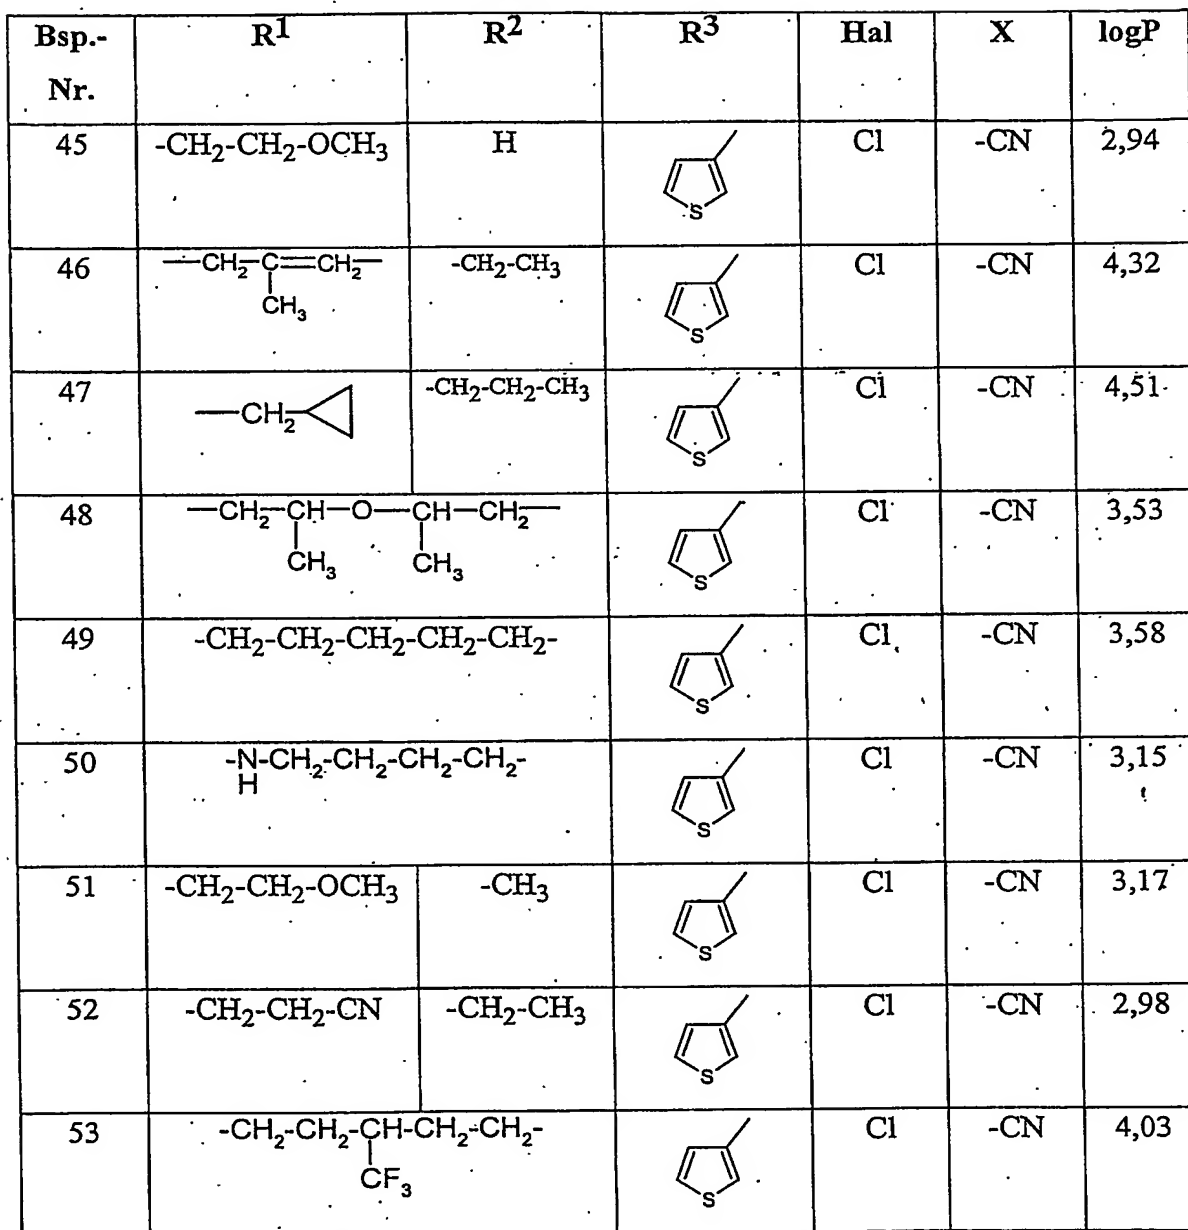 Bsp.-Nr. R1 R2 R3 Hal X logP
45 -CH2-CH2-OCH3 H S Cl -CN 2,94
46 —CH2-C=CH2— -CH2-CH3 S Cl -CN 4,32
CH3
47 —CH2 -CH2-CH2-CH3 S Cl -CN 4,51
48 —CH2—CH—O—CH—CH2— S Cl -CN 3,53
CH3 CH3
49 -CH2-CH2-CH2-CH2-CH2- S Cl -CN 3,58
50 -N-CH2-CH2-CH2-CH2- S Cl -CN 3,15
H
51 -CH2-CH2-OCH3 -CH3 S Cl -CN 3,17
52 -CH2-CH2-CN -CH2-CH3 S Cl -CN 2,98
53 -CH2-CH2-CH-CH2-CH2- S Cl -CN 4,03
CF3